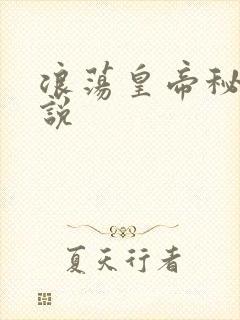 浪蕩皇帝秘
説
夏天行者